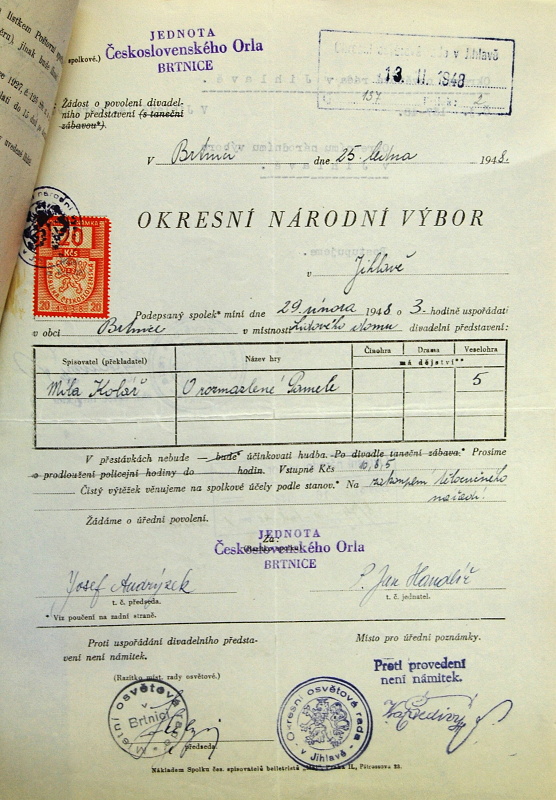 JEDNOTA
spolkové.) Československého Orla
BRTNICE
Okresní osvětová rada v Jihlavě
13. II. 1948
137 2
Žádost o povolení divadel-
ního představení (s taneční
zábavou*).
V Brtnici dne 25. ledna 1948.
OKRESNÍ NÁRODNÍ VÝBOR
v Jihlavě
20
Kčs
20 1938 20
Podepsaný spolek* míní dne 29. února 1948 o 3. hodině uspořádati
v obci Brtnice v místnosti Lidového domu divadelní představení:
Spisovatel (překladatel) Název hry Činohra Drama Veselohra
má dějství**
Míla Kolář O rozmazlené Pamele 5
V přestávkách nebude — bude* účinkovati hudba. Po divadle taneční zábava.* Prosíme
o prodloužení policejní hodiny do hodin. Vstupné Kčs 10, 8, 5
Čistý výtěžek věnujeme na spolkové účely podle stanov.* Na zakoupení tělocvičného
nářadí.
Žádáme o úřední povolení.
JEDNOTA
Za:
Československého Orla
BRTNICE
Josef P. Jan
t. č. předseda. t. č. jednatel.
* Viz poučení na zadní straně.
Proti uspořádání divadelního předsta-
vení není námitek.
Místo pro úřední poznámky.
(Razítko míst. rady osvětové.)
Proti provedení
není námitek.
Místní osvětová
v
Brtnici
předseda.
Okresní osvětová rada
v Jihlavě
Nákladem Spolku čes. spisovatelů beletristů Praha II.,